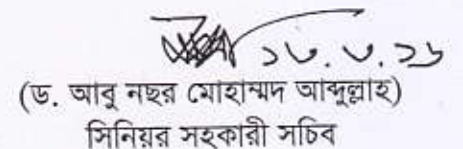 ১৩.৩.১৬
(ড. আবু নছর মোহাম্মদ আব্দুল্লাহ)
সিনিয়র সহকারী সচিব